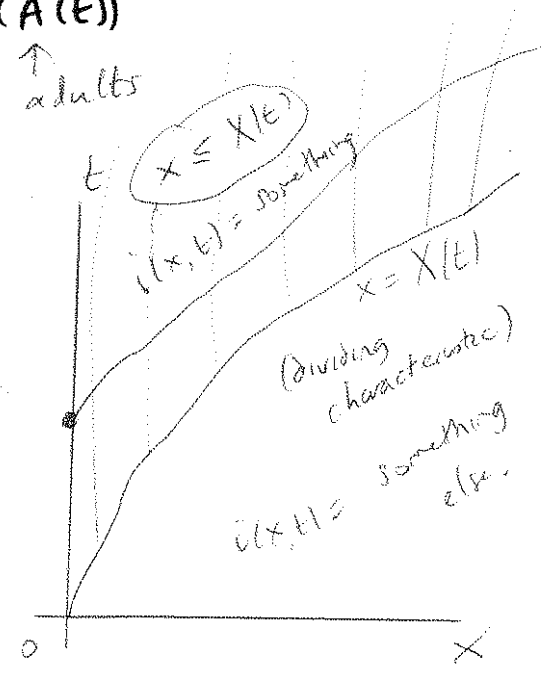 (A(t))
↑
adults
t
x ≤ X(t)
i(x,t) = something
x = X(t)
(dividing
characteristic)
i(x,t) = something
else.
0
x